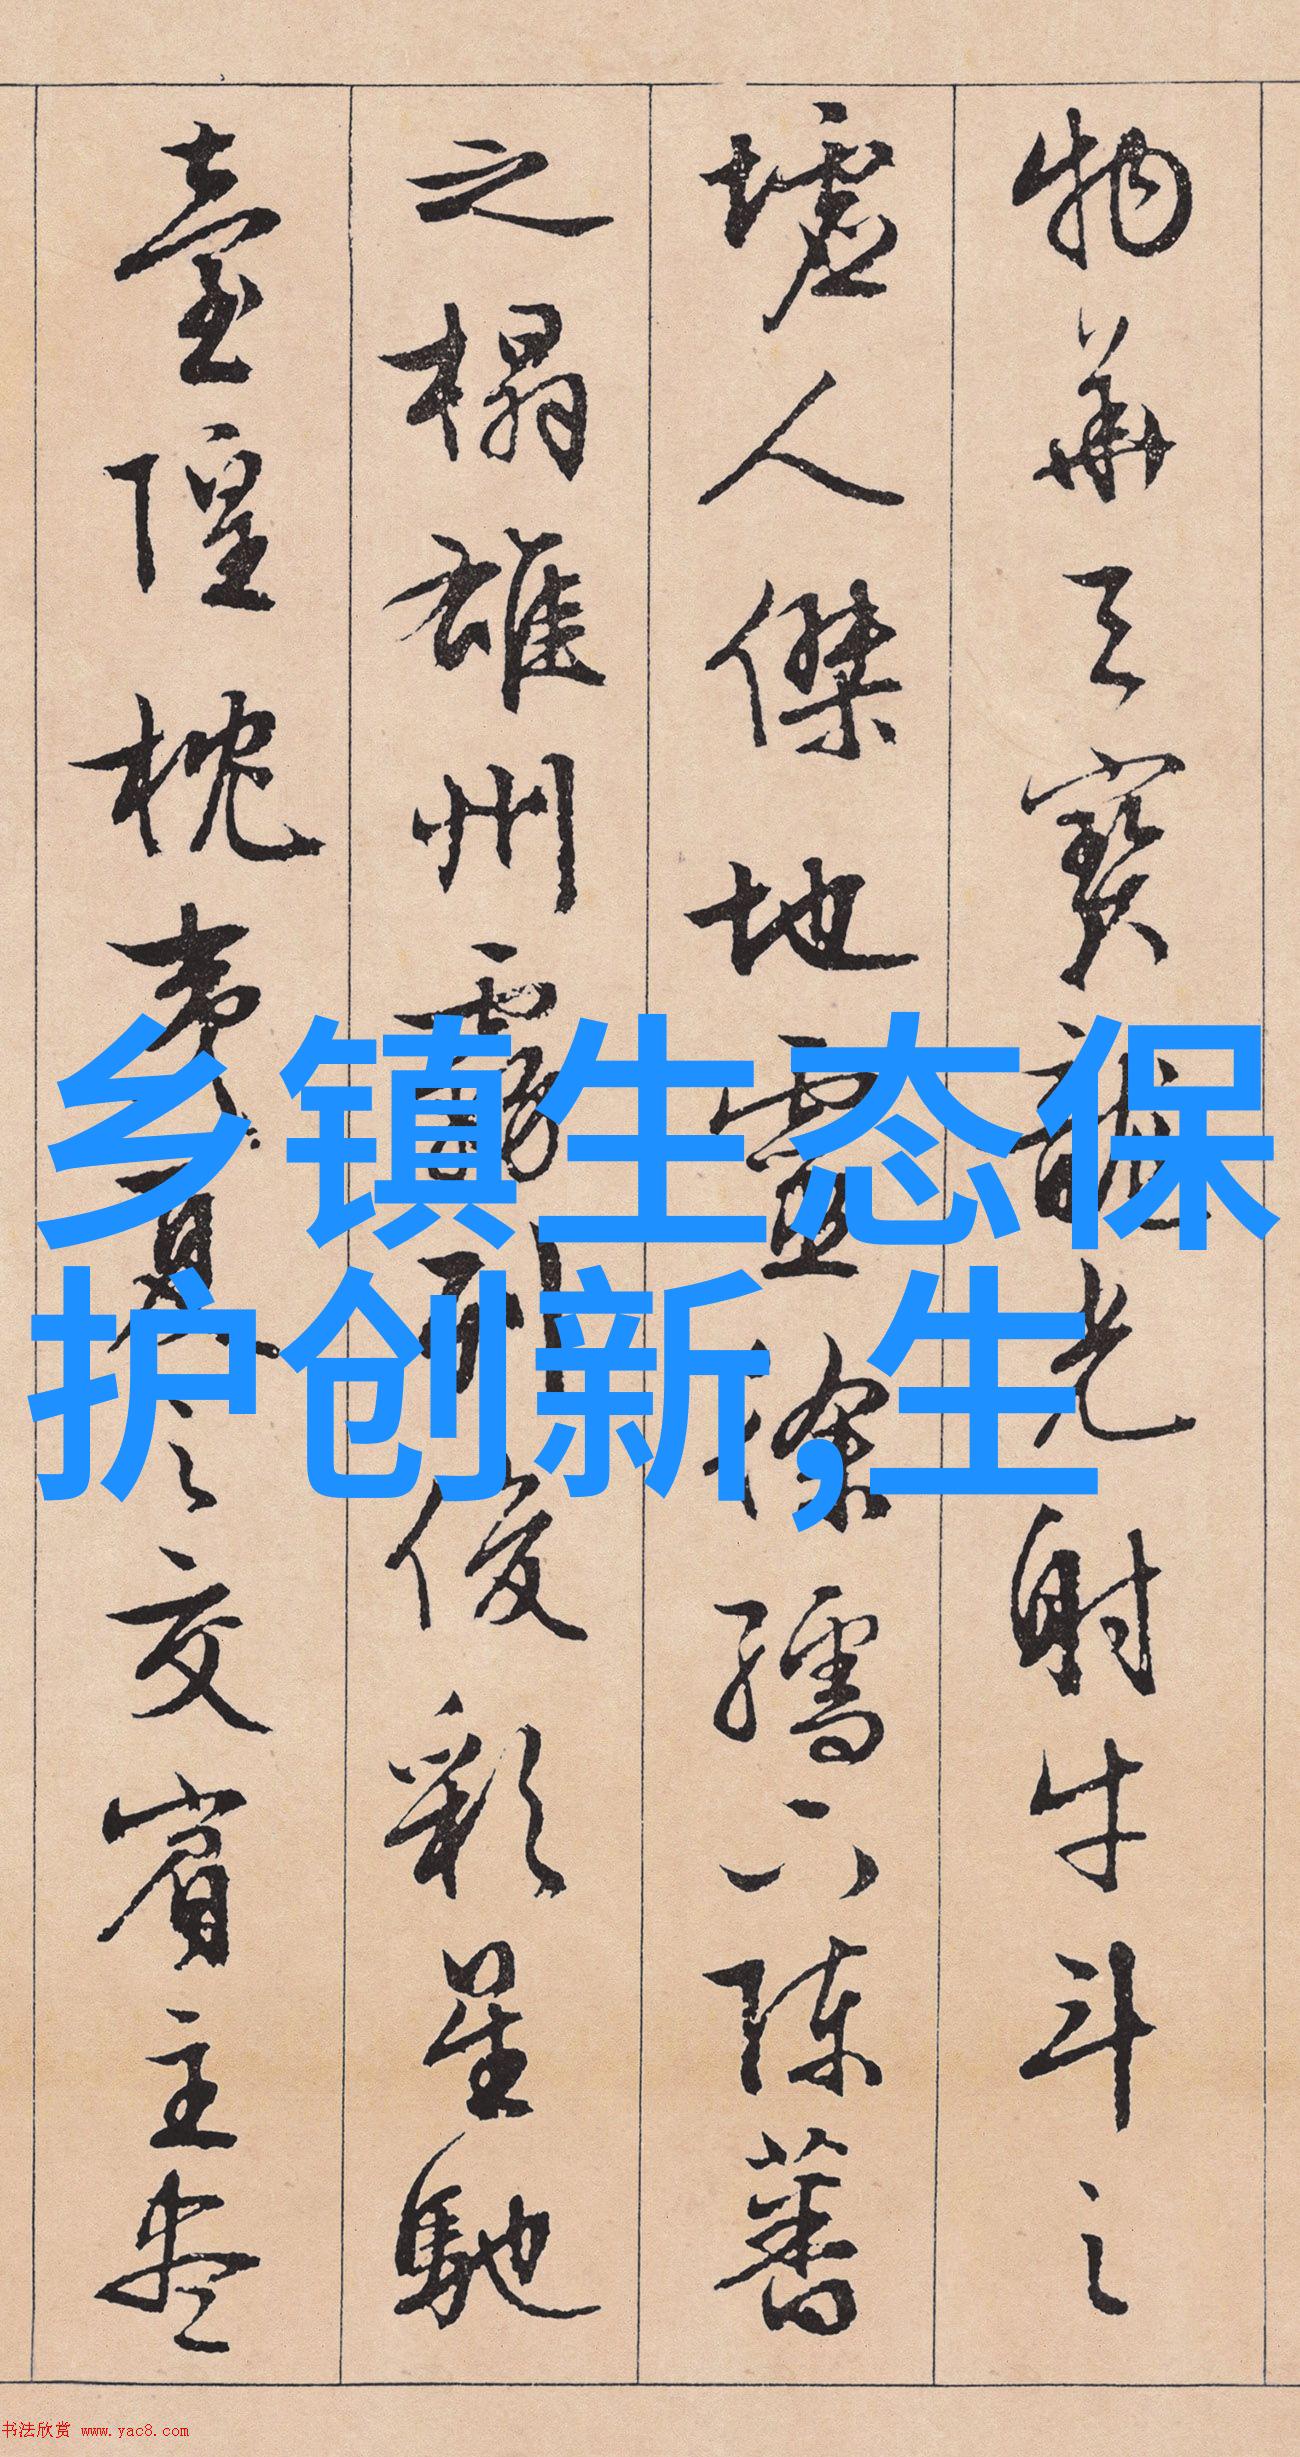 物華天寶龍光射牛斗之
墟人傑地靈徐孺下陳蕃
之榻雄州霧列俊彩星馳
臺隍枕夷夏之交賓主盡
乡镇生态保
护创新,生
书法欣赏 www.yac8.com